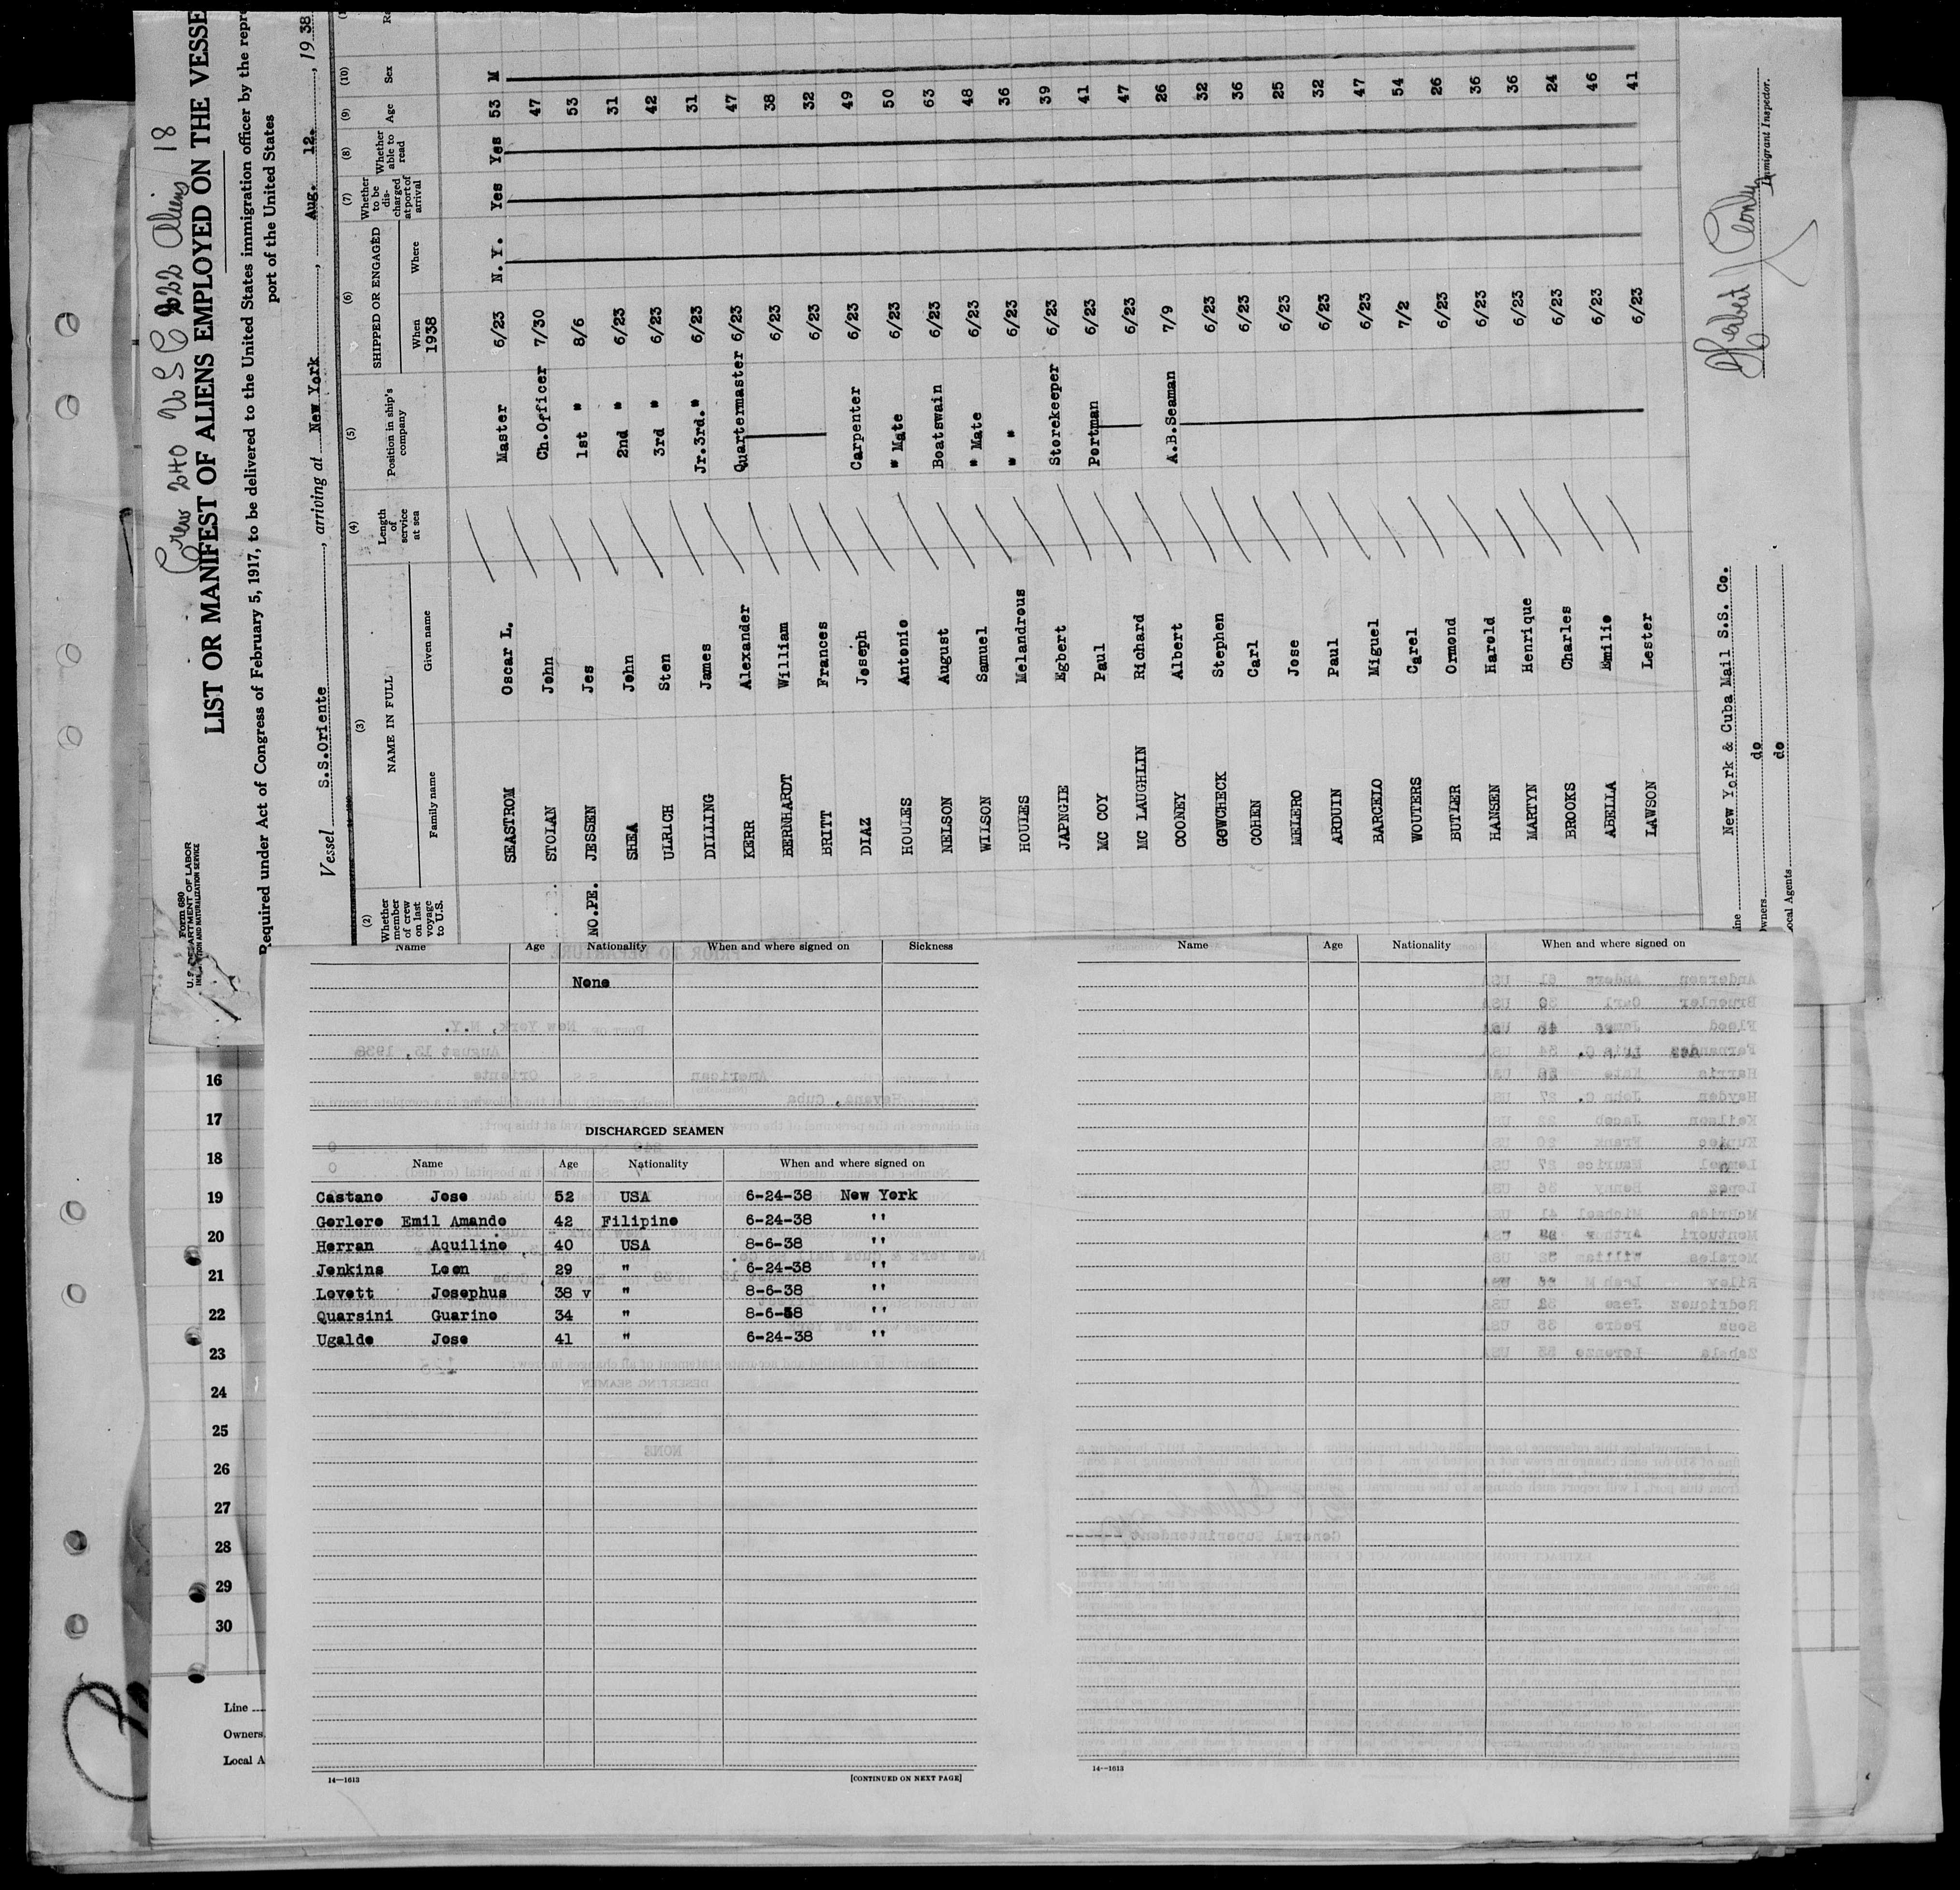 Crew 240 USC 222 Aliens 18
Form 680
U.S. DEPARTMENT OF LABOR
IMMIGRATION AND NATURALIZATION SERVICE
LIST OR MANIFEST OF ALIENS EMPLOYED ON THE VESSE
Required under Act of Congress of February 5, 1917, to be delivered to the United States immigration officer by the repr
port of the United States
Vessel S.S.Oriente, arriving at New York, Aug. 12., 1938
(2) Whether member of crew on last voyage to U.S.
(3) NAME IN FULL
Family name Given name
(4) Length of service at sea
(5) Position in ship's company
(6) SHIPPED OR ENGAGED
When 1938 Where
(7) Whether to be discharged at port of arrival
(8) Whether able to read
(9) Age
(10) Sex
SEASTROM Oscar L. Master 6/23 N.Y. Yes Yes 53 M
STOLAN John Ch.Officer 7/30 47
NO.PE. JESSEN Jes 1st " 8/6 53
SHEA John 2nd " 6/23 31
ULRICH Sten 3rd " 6/23 42
DILLING James Jr.3rd. " 6/23 31
KERR Alexander Quartermaster 6/23 47
BERNHARDT William 6/23 38
BRITT Frances 6/23 32
DIAZ Joseph Carpenter 6/23 49
HOULES Antonio " Mate 6/23 50
NELSON August Boatswain 6/23 63
WILSON Samuel " Mate 6/23 48
HOULES Melandrous " " 6/23 36
JAPNGIE Egbert Storekeeper 6/23 39
MC COY Paul Portman 6/23 41
MC LAUGHLIN Richard 6/23 47
COONEY Albert A.B.Seaman 7/9 26
GOWCHECK Stephen 6/23 32
COHEN Carl 6/23 36
MELERO Jose 6/23 25
ARDUIN Paul 6/23 32
BARCELO Miguel 6/23 47
WOUTERS Carel 7/2 54
BUTLER Ormond 6/23 26
HANSEN Harold 6/23 36
MARTYN Henrique 6/23 36
BROOKS Charles 6/23 24
ABELLA Emilio 6/23 46
LAWSON Lester 6/23 41
New York & Cuba Mail S.S. Co.
do
do
Immigrant Inspector.
Name Age Nationality When and where signed on Sickness
None
DISCHARGED SEAMEN
Name Age Nationality When and where signed on
Castano Jose 52 USA 6-24-38 New York
Gorlero Emil Amando 42 Filipino 6-24-38 "
Herran Aquilino 40 USA 8-6-38 "
Jenkins Leon 29 " 6-24-38 "
Lovett Josephus 38 v " 8-6-38 "
Quarsini Guarino 34 " 8-6-38 "
Ugalde Jose 41 " 6-24-38 "
14—1613
[CONTINUED ON NEXT PAGE]
Name Age Nationality When and where signed on
14—1613
16
17
18
19
20
21
22
23
24
25
26
27
28
29
30
Line
Owners
Local A